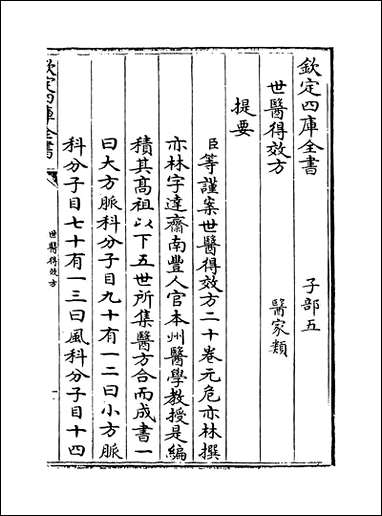 欽定四庫全書 子部五
世醫得效方 醫家類
提要
臣等謹案世醫得效方二十卷元危亦林撰
亦林字達齋南豐人官本州醫學教授是編
積其高祖以下五世所集醫方合而成書一
曰大方脈科分子目九十有一二曰小方脈
科分子目七十有一三曰風科分子目十四
欽定四庫全書
世醫得效方